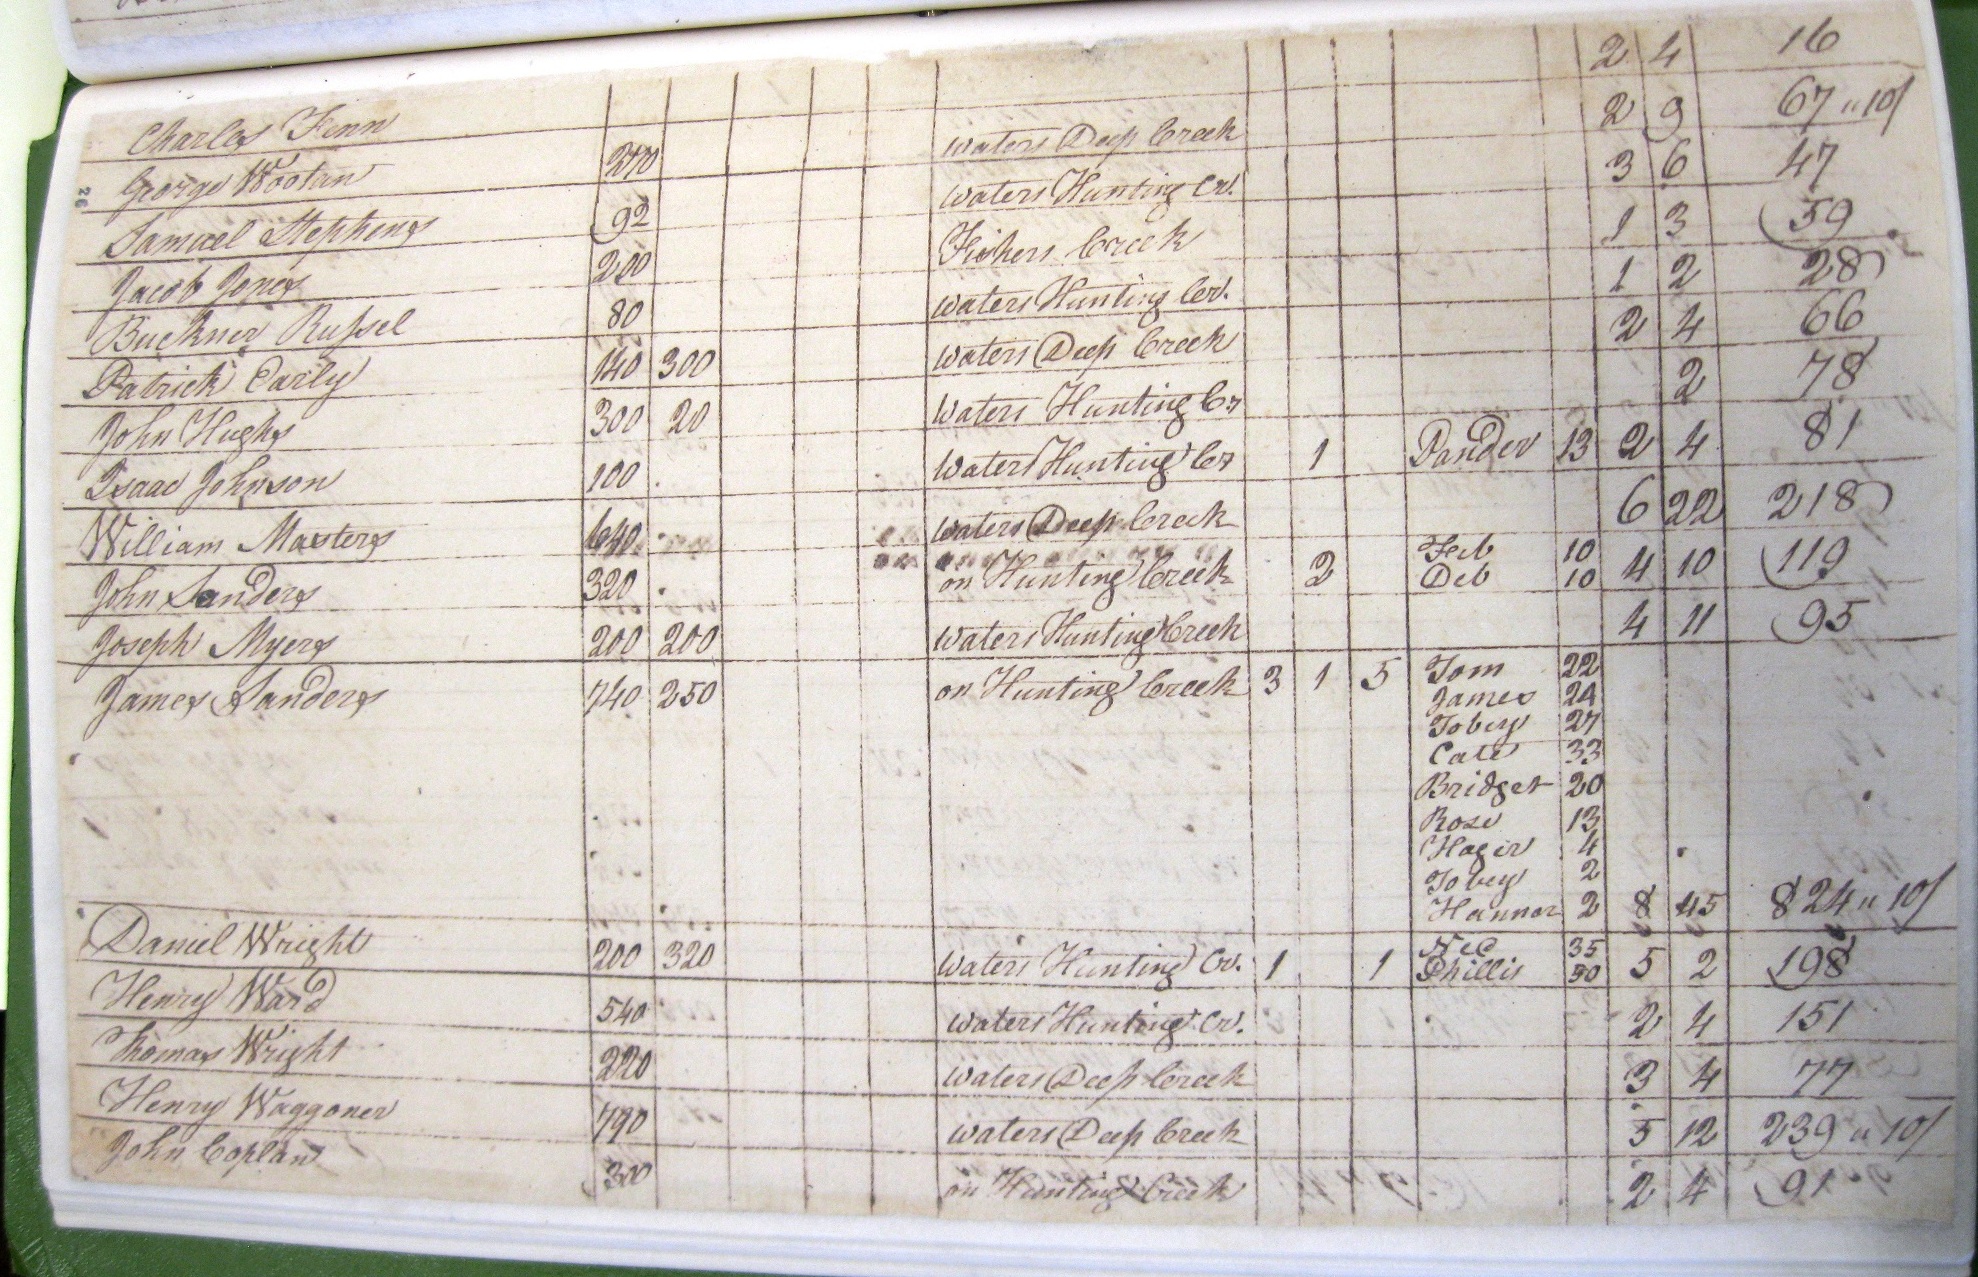 Charles Fenn 2 4 16
George Wootan 270 waters Deep Creek 2 9 67 " 10/
Samuel Stephens 92 waters Hunting Cr. 3 6 47
Jacob Jones 200 Fishers Creek 1 3 59
Buckner Russel 80 waters Hunting Cr. 1 2 28
Patrick Early 140 300 waters Deep Creek 2 4 66
John Hughs 300 20 waters Hunting Cr 2 78
Isaac Johnson 100 waters Hunting Cr 1 Pander 13 2 4 81
William Masters 640 waters Deep Creek 6 22 218
John Sanders 320 on Hunting Creek 2 10 4 10 119
Deb 10
Joseph Myers 200 200 waters Hunting Creek 4 11 95
James Sanders 740 250 on Hunting Creek 3 1 5 Tom 22
James 24
Tobey 27
Cate 33
Bridget 20
Rose 13
Hager 4
Tobey 2
Hannar 2 8 45 824 " 10/
Daniel Wright 200 320 waters Hunting Cr. 1 1 Ned 35 5 2 198
Phillis 50
Henry Ward 540 waters Hunting Cr. 2 4 151
Thomas Wright 220 waters Deep Creek 3 4 77
Henry Waggoner 790 waters Deep Creek 5 12 239 " 10/
John Coplan 300 on Hunting Creek 2 4 91
26